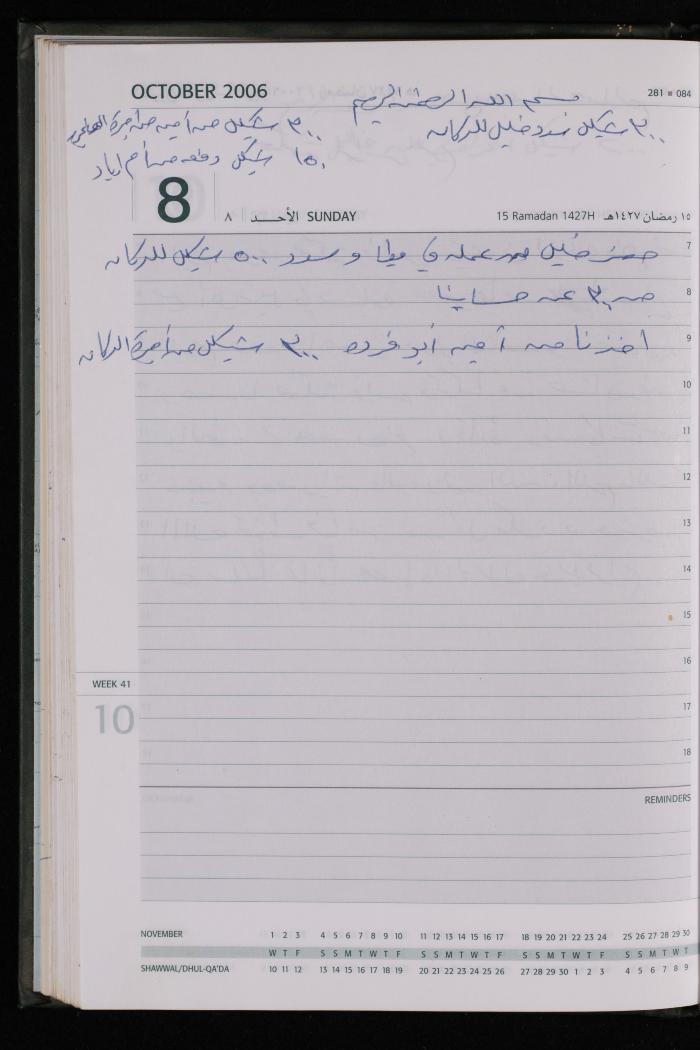 OCTOBER 2006
281 ■ 084
بسم الله الرحمن الرحيم
٣٠٠ شيكل سدد خليل للدكان
٣٠٠ شيكل من أمين من أجرة
١٥٠ شيكل دفعه من أم اياد
8
٨ الأحــد SUNDAY
15 Ramadan 1427H ١٥ رمضان ١٤٢٧هـ
7 حضر خليل من عمله في وسدد ٥٠٠ شيكل للدكان
8 من ٣٠٠ عن حسابنا
9 اخذنا من أمين أبو فرده ٣٠٠ شيكل من أجرة الدكان
10
11
12
13
14
15
16
WEEK 41
10
17
18
REMINDERS
NOVEMBER 1 2 3 4 5 6 7 8 9 10 11 12 13 14 15 16 17 18 19 20 21 22 23 24 25 26 27 28 29 30
W T F S S M T W T F S S M T W T F S S M T W T F S S M T W T
SHAWWAL/DHUL-QA'DA 10 11 12 13 14 15 16 17 18 19 20 21 22 23 24 25 26 27 28 29 30 1 2 3 4 5 6 7 8 9